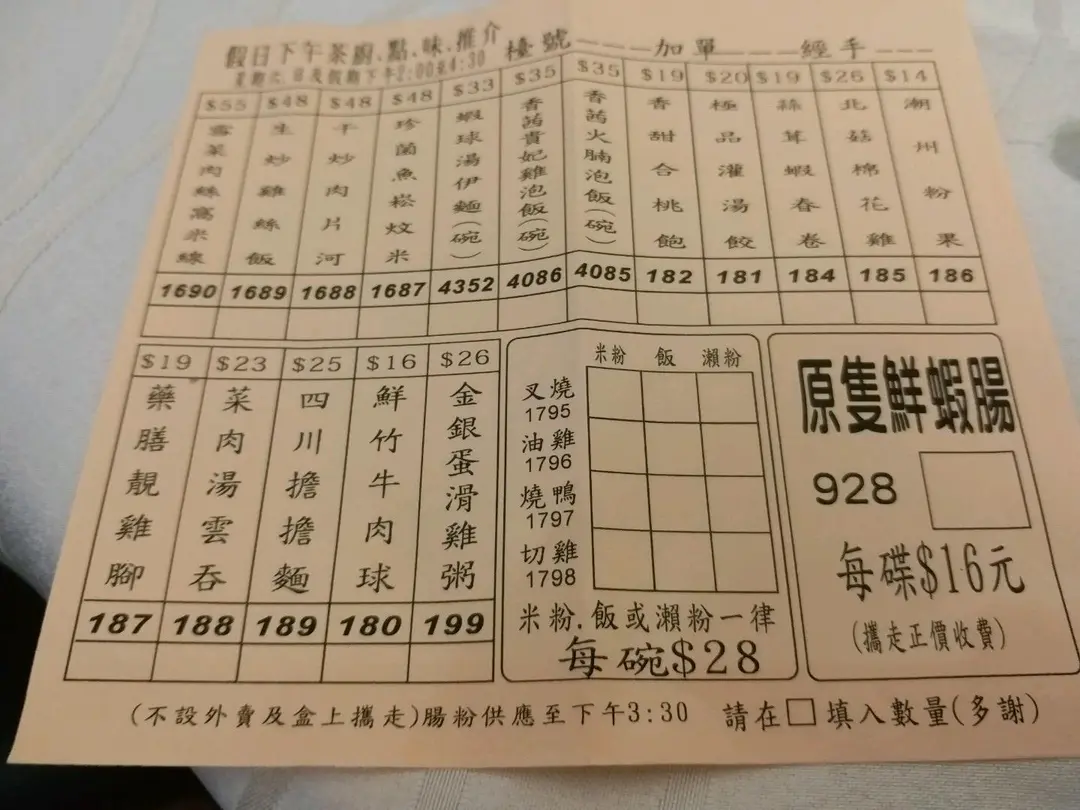 假日下午茶廚.點.味.推介 檯號____加單____經手___
星期六.日及假期下午2:00至4:30
$55 $48 $48 $48 $33 $35 $35 $19 $20 $19 $26 $14
雪菜肉絲窩米線
生炒雞絲飯
干炒肉片河
珍菌魚崧炆米
蝦球湯伊麵(碗)
香茜貴妃雞泡飯(碗)
香茜火腩泡飯(碗)
香甜合桃飽
極品灌湯餃
蒜茸蝦春卷
北菇棉花雞
潮州粉果
1690 1689 1688 1687 4352 4086 4085 182 181 184 185 186
$19 $23 $25 $16 $26
藥膳靚雞腳
菜肉湯雲吞
四川擔擔麵
鮮竹牛肉球
金銀蛋滑雞粥
187 188 189 180 199
米粉 飯 瀨粉
叉燒
1795
油雞
1796
燒鴨
1797
切雞
1798
米粉.飯或瀨粉一律
每碗$28
原隻鮮蝦腸
928
每碟$16元
(攜走正價收費)
(不設外賣及盒上攜走)腸粉供應至下午3:30 請在□填入數量(多謝)